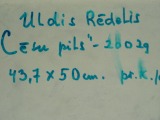 Uldis Rēdelis
"Cēsu pils" - 2002g
43,7 x 50 cm. pr.k.